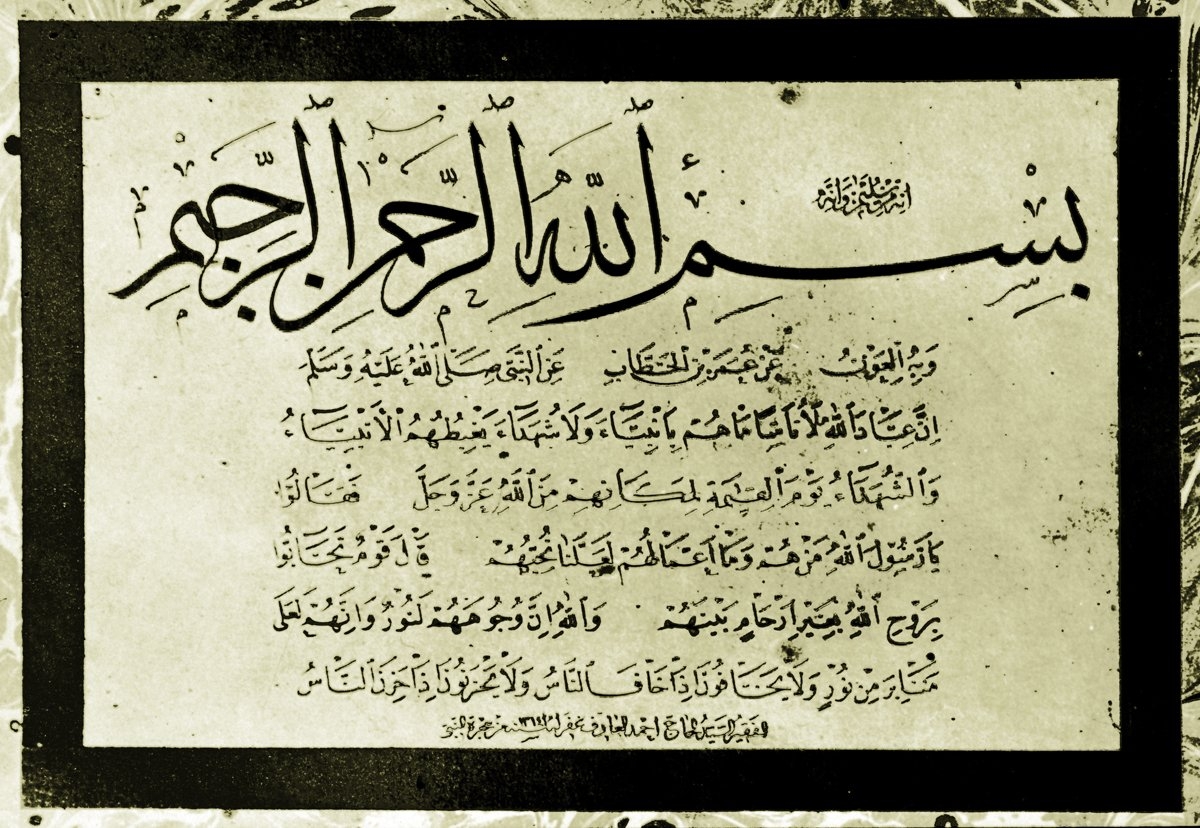 إنه من سليمن وإنه
بسم الله الرحمن الرحيم
وبه العون عن عمر بن الخطاب عن النبي صلى الله عليه وسلم
إن عباد الله لأناسا ما هم بأنبياء ولا شهداء يغبطهم الأنبياء
والشهداء يوم القيمة لمكانهم من الله عز وجل فقالوا
يا رسول الله من هم وما أعمالهم لعلنا نحبهم قال قوم تحابوا
بروح الله بغير أرحام بينهم والله إن وجوههم لنور وإنهم لعلى
منابر من نور ولا يخافون إذا خاف الناس ولا يحزنون إذا حزن الناس
الفقير السيد الحاج احمد العارف غفر له سنة ١٣١٤ من هجرة النبي